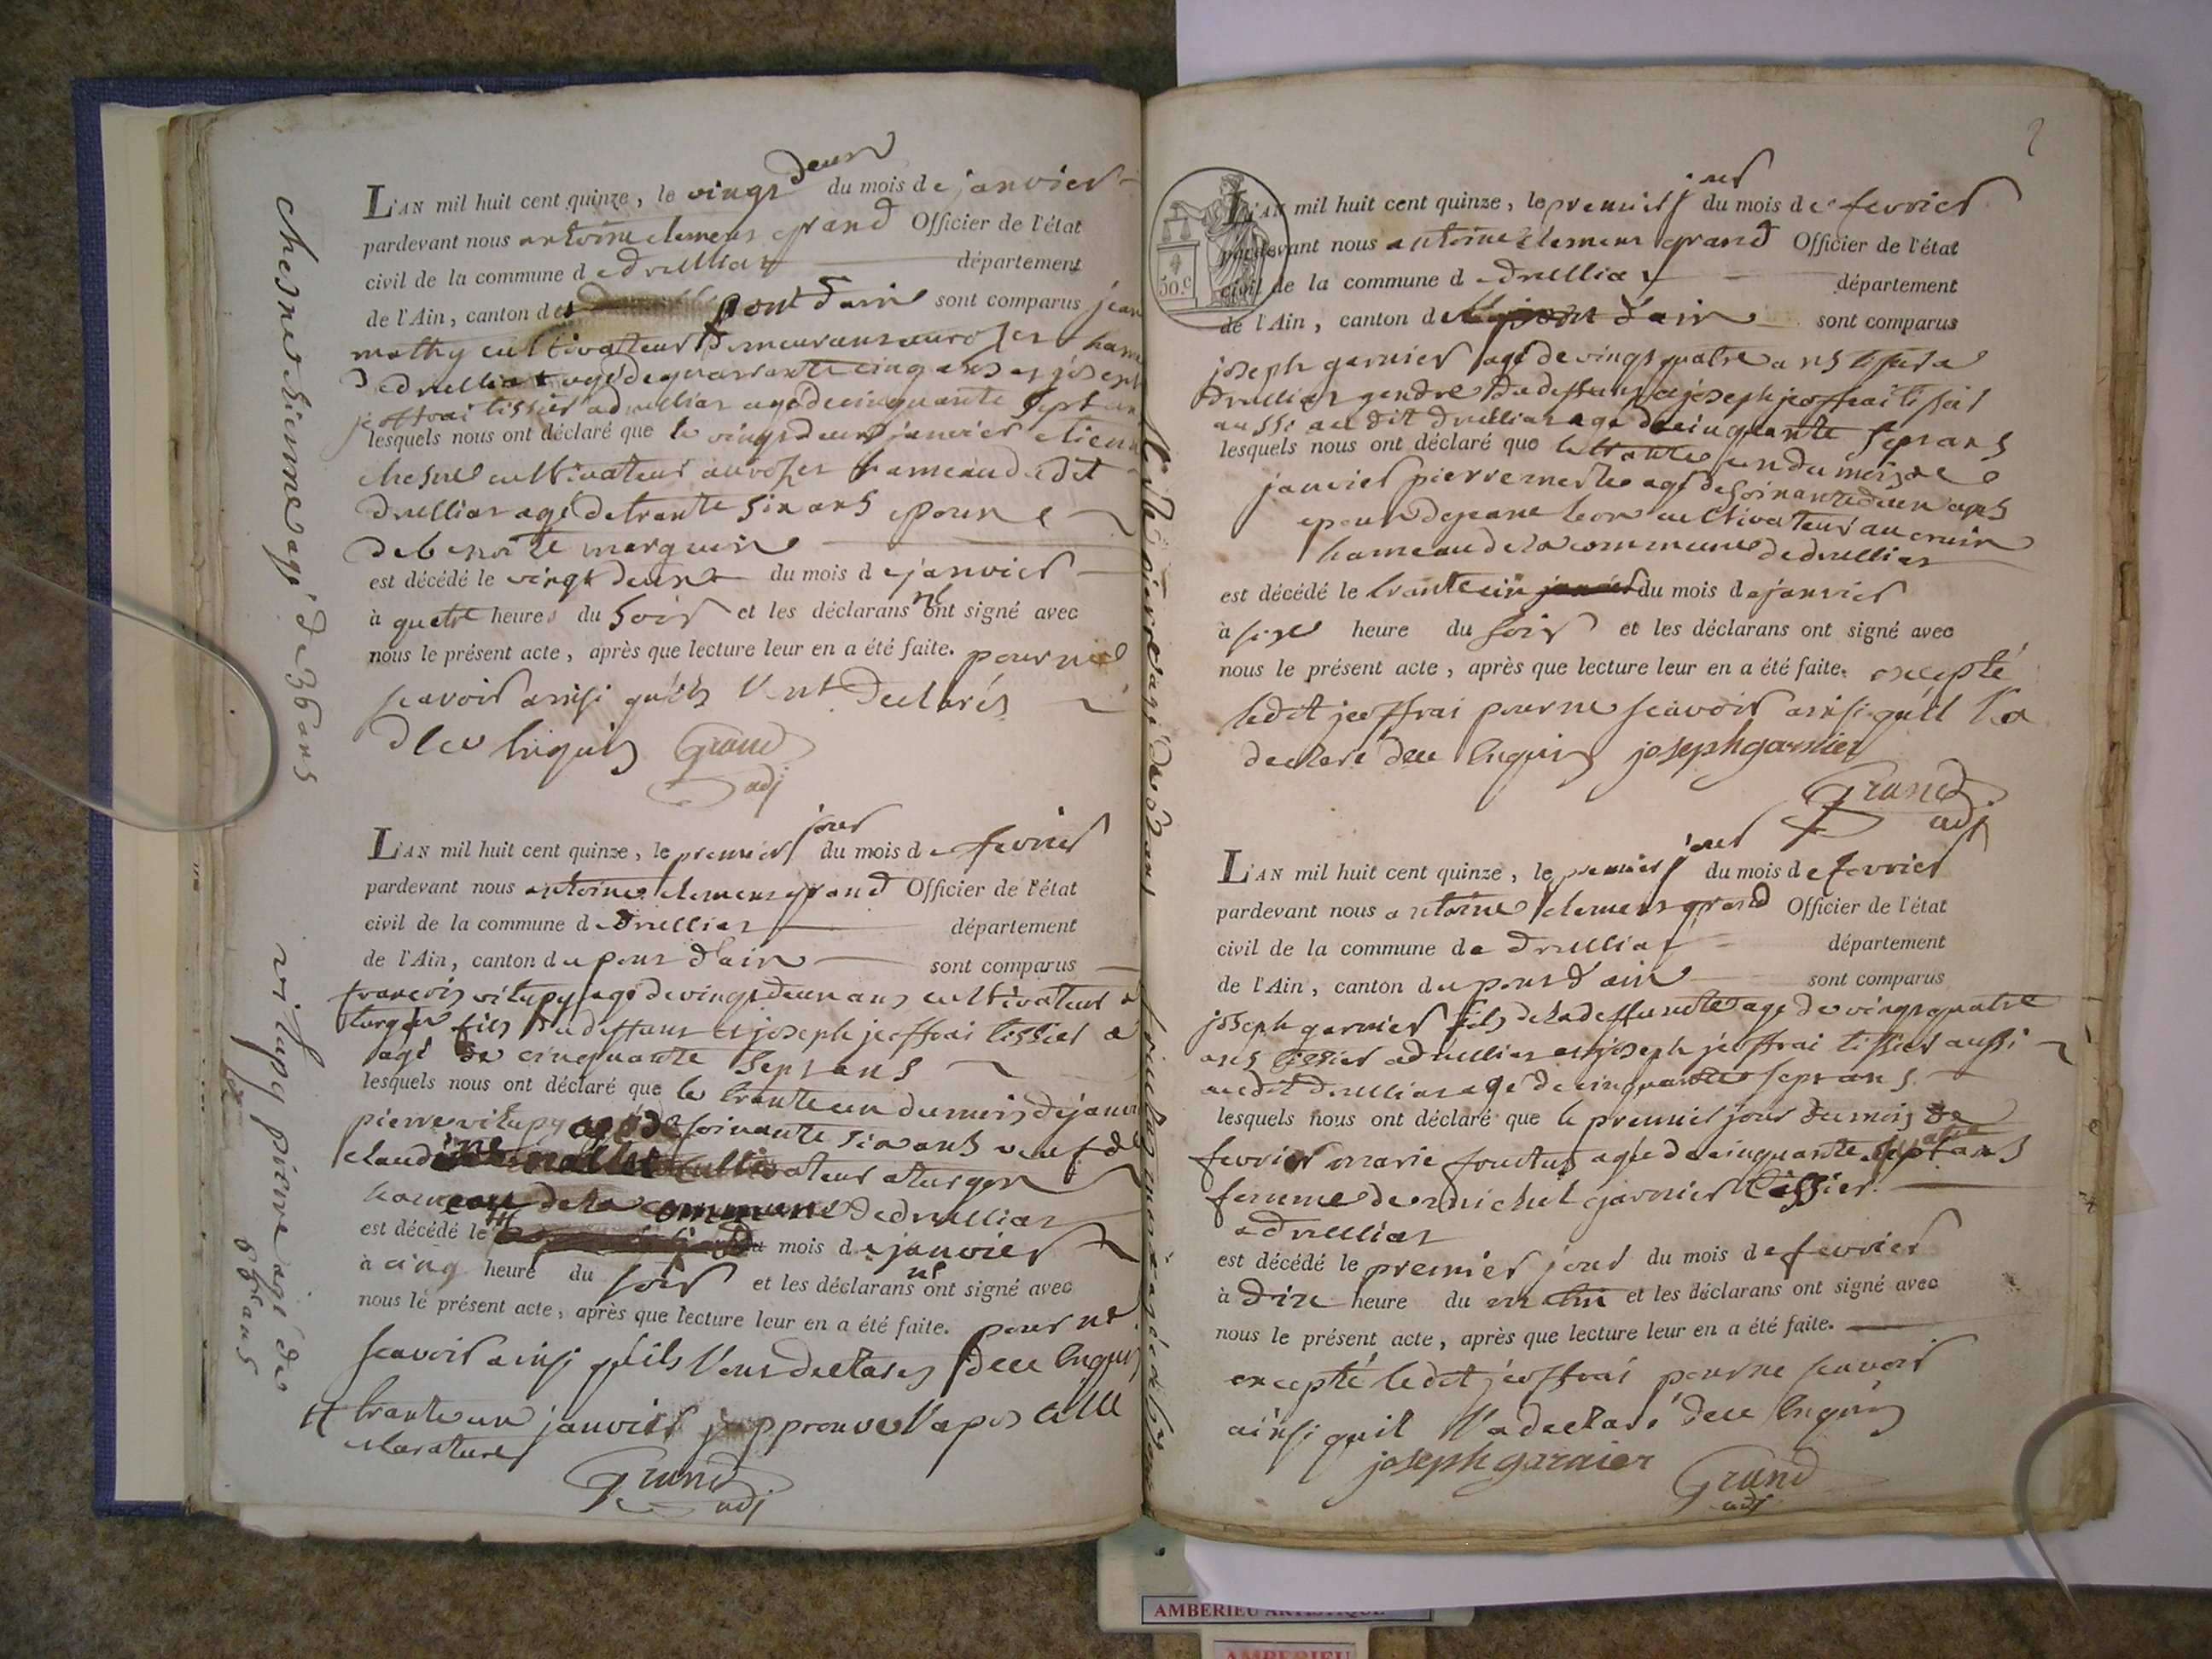 chesne etienne agé de 36 ans
L'AN mil huit cent quinze, le vingt deux du mois de janvier
pardevant nous antoine clemens grand Officier de l'état
civil de la commune d e druillias département
de l'Ain, canton de pont dain sont comparus jean
mathy cultivateur demeurans hame
druillias agé de quarrante cinq ans et joseph
jeoffrai tissier a druillias agé de cinquante sept an
lesquels nous ont déclaré que le vingt deux janvier etienn
chesne cultivateur hameau du dit
druillias agé de trante six ans epoux
de benoite marguin
est décédé le vingt deux du mois de janvier
à quatre heures du soir et les déclarans n'ont signé avec
nous le présent acte, après que lecture leur en a été faite. pour ne
scavoir ainsi qu'ils l'ont declarés
dce enquis Grand
adj
vitupy pierre agé de
66 ans
L'AN mil huit cent quinze, le premier jour du mois de fevrier
pardevant nous antoine clemens grand Officier de l'état
civil de la commune d e druillias département
de l'Ain, canton du pont d'ain sont comparus
francois vitupy agé de vingt deux ans cultivateur a
turgon fils du deffunt et joseph jeoffrai tissier a
agé de cinquante sept ans
lesquels nous ont déclaré que le trante un du mois de janvi
pierre vitupy agé de soixante six ans veuf de
claudine cultivateur a turgon
hameau de la commune de druillias
est décédé le # du mois de janvier
à cinq heure du soir et les déclarans n'ont signé avec
nous le présent acte, après que lecture leur en a été faite. pour ne
scavoir ainsi qu'ils l'ont declarés dce enquis
# trante un janvier japprouve
Grand
adj
2
30.c
L'AN mil huit cent quinze, le premier jour du mois de fevrier
pardevant nous antoine clemens grand Officier de l'état
civil de la commune d e druillias département
de l'Ain, canton de pont d'ain sont comparus
joseph garnier agé de vingt quatre ans tissier a
druillias gendre du deffunt et joseph jeoffrai tissier
aussi au dit druillias agé de cinquante sept ans
lesquels nous ont déclaré que le trante un du mois de
janvier pierre agé de soixante deux ans
epoux de jeane cultivateur au
hameau de la commune de druillias
est décédé le trante un janvier du mois de janvier
à size heure du soir et les déclarans ont signé avec
nous le présent acte, après que lecture leur en a été faite. excepté
ledit jeoffrai pour ne scavoir ainsi quil l'a
declaré dce enquis joseph garnier
Grand
adj
L'AN mil huit cent quinze, le premier jour du mois de fevrier
pardevant nous antoine clemens grand Officier de l'état
civil de la commune de druillias département
de l'Ain, canton du pont d'ain sont comparus
joseph garnier fils de la deffunte agé de vingt quatre
ans tissier a druillias et joseph jeoffrai tissier aussi
au dit druillias agé de cinquante sept ans
lesquels nous ont déclaré que le premier jour du mois de
fevrier marie fouctus agée de cinquante
femme de michel garnier tissier
a druillias
est décédé le premier jour du mois de fevrier
à dix heure du matin et les déclarans ont signé avec
nous le présent acte, après que lecture leur en a été faite.
excepté ledit jeoffrai pour ne scavoir
ainsi quil l'a declaré dce enquis
joseph garnier Grand
adj
AMBERIEU ARTISTIQUE
AMBERIEU